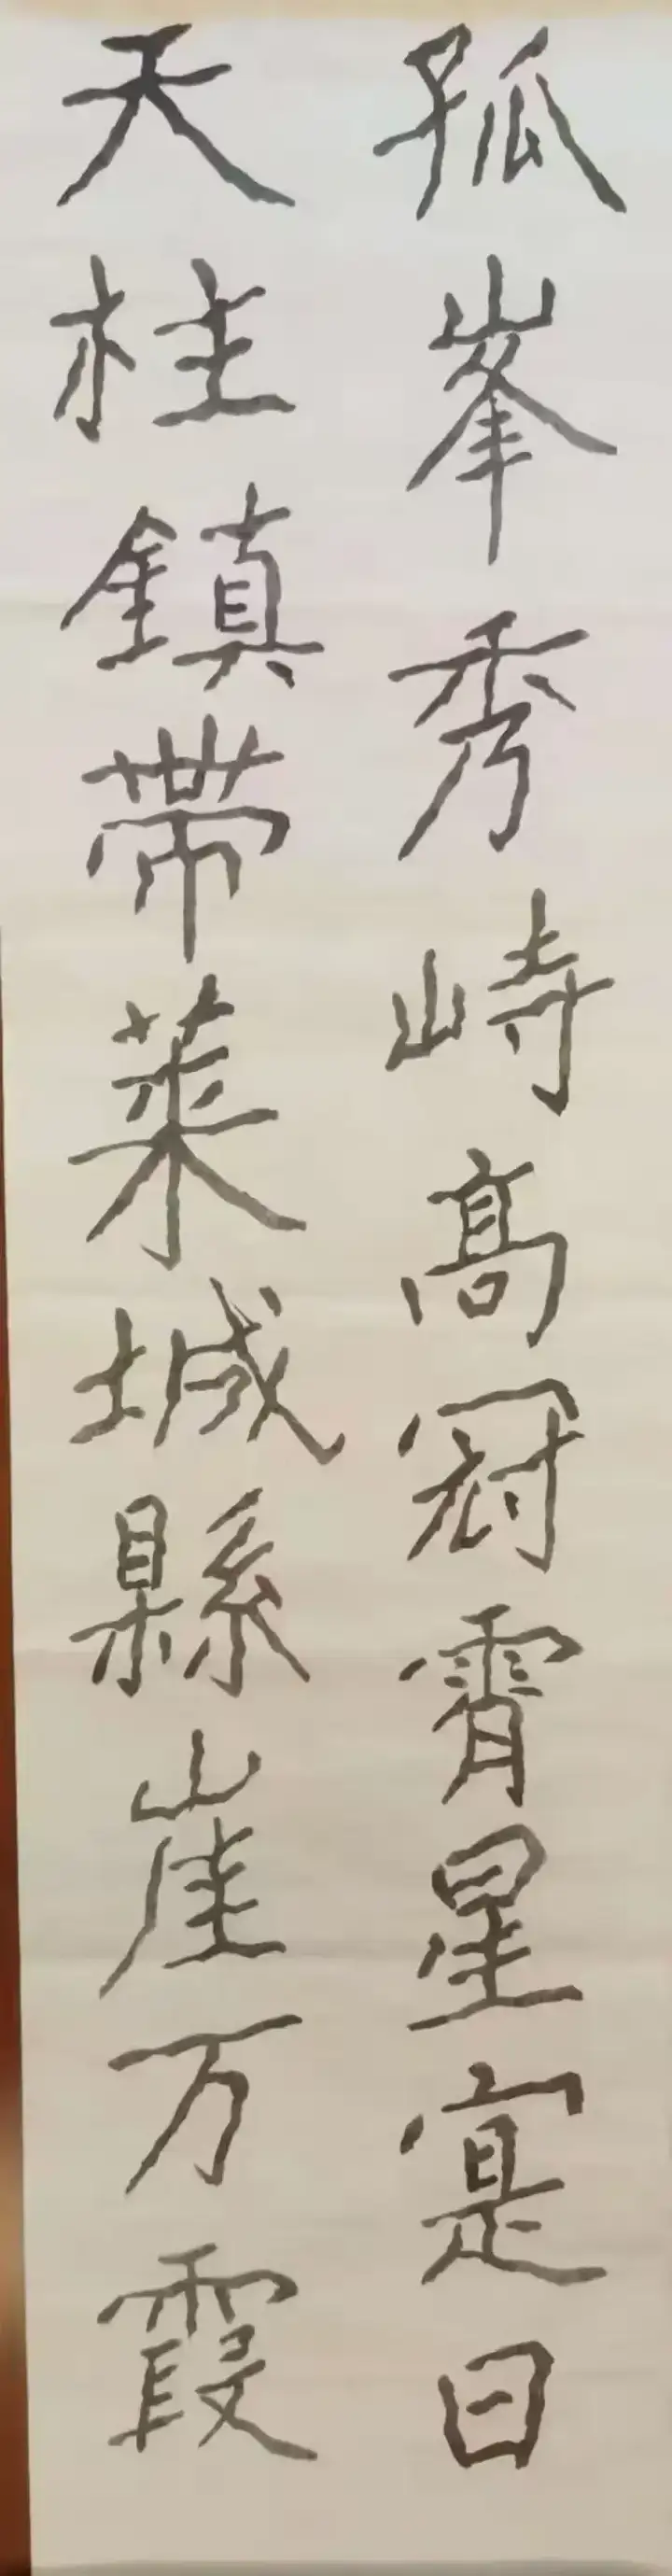 孤峯秀峙高冠霄星寔曰
天柱鎮帶萊城縣崖万霞